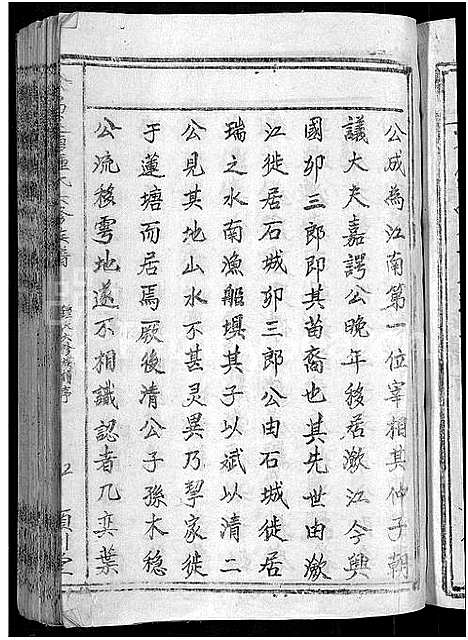 公成為江南第一位宰相其仲子朝
議大夫嘉諤公晚年移居潋江今興
國卯三郎即其苗裔也其先世由潋
江徙居石城卯三郎公由石城徙居
瑞之水南漁船塤其子以斌以清二
公見其地山水不甚灵異乃挈家徙
于蓮塘而居焉厥後清公子孫木穏
公流移雩地遂不相識認者几奕葉